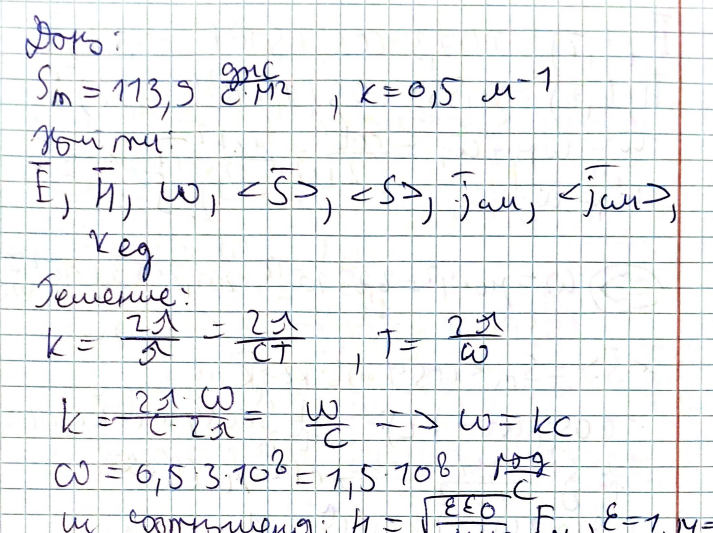 Дано:
Sm = 113,9 дж/с·м², k = 0,5 м⁻¹
Найти:
E̅, H̅, ω, <S̅>, <S>, j̅см, <j̅см>,
Kед
Решение:
k = 2π/λ = 2π/cT, T = 2π/ω
k = 2π·ω/c·2π = ω/c => ω = kc
ω = 0,5·3·10⁸ = 1,5·10⁸ рад/с
соотношения: H = √εε0 E, ε=1,